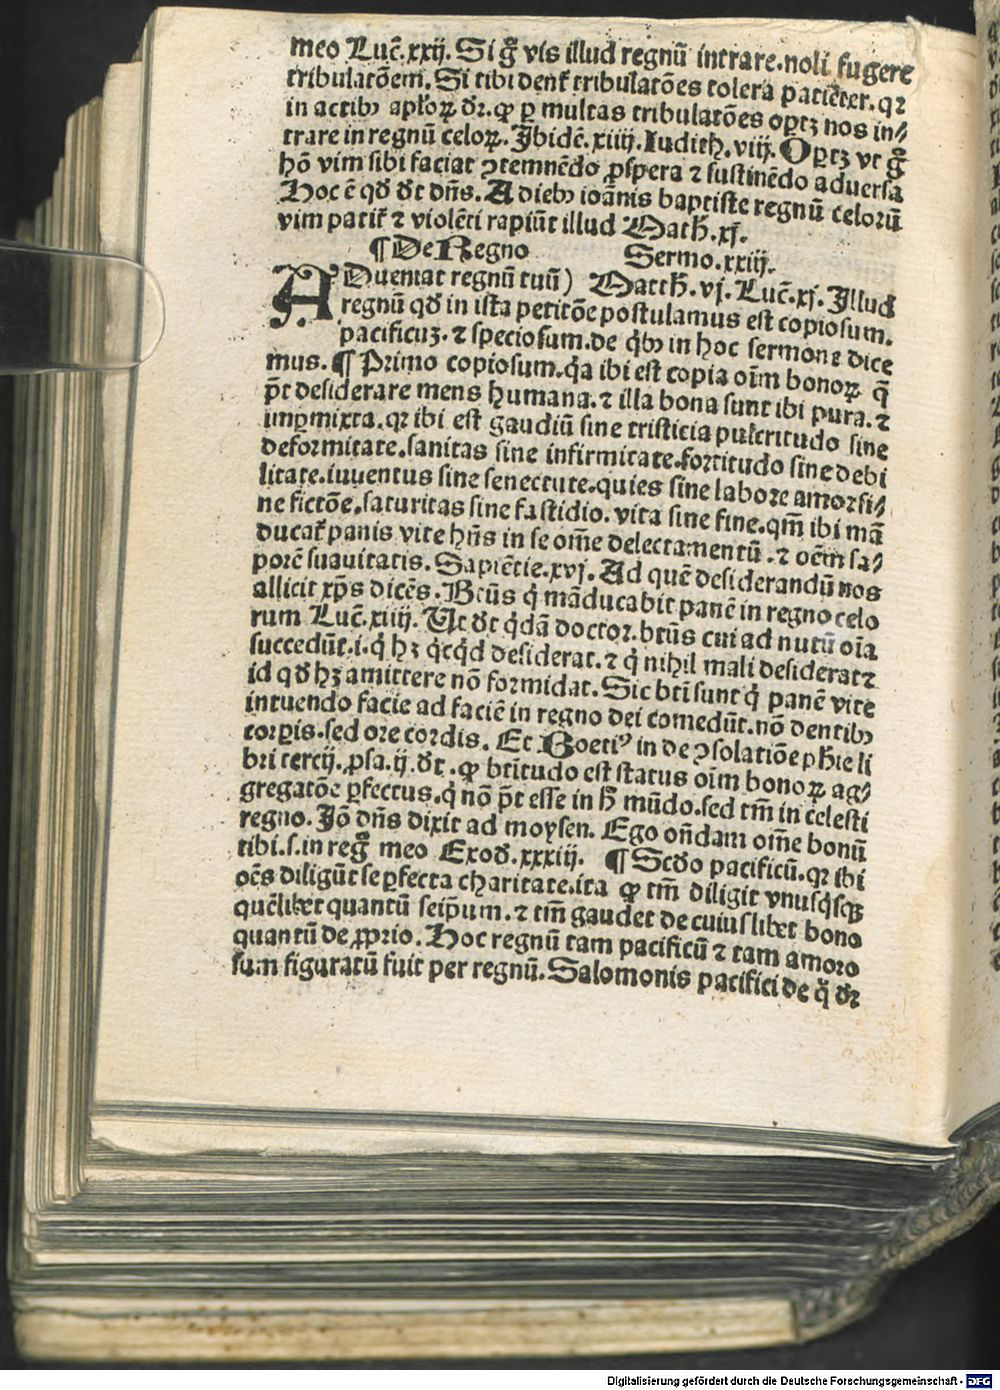 meo Luc̄. xxij. Si gͦ vis illud regnū intrare. noli fugere
tribulatōem. Si tibi dent᷑ tribulatōes tolera patiēter. qꝛ
in actibꝰ apl̓oꝝ dꝛ. ꝙ ꝑ multas tribulatōes optꝫ nos in⸗
trare in regnū celoꝝ. Ibidē. xiiij. Iudith. viij. Optꝫ vt gͦ
hō vim sibi faciat ꝯtemnēdo ꝓspera ⁊ sustinēdo aduersa
Hoc ē qđ dt dn̄s. A diebꝰ ioānis baptiste regnū celorū
vim patit᷑ ⁊ violēti rapiūt illud Math. xj.
¶ De Regno Sermo. xxiij.
ADueniat regnū tuū) Matth. vj. Luc̄. xj. Illud
regnū qđ in ista petitōe postulamus est copiosum.
pacificuꝫ. ⁊ speciosum. de qͥbꝰ in hoc sermone dice
mus. ¶ Primo copiosum. qꝛ ibi est copia oīm bonoꝝ q̄
pt̄ desiderare mens humana. ⁊ illa bona sunt ibi pura. ⁊
imꝑmixta. qꝛ ibi est gaudiū sine tristicia pulcritudo sine
deformitate. sanitas sine infirmitate. fortitudo sine debi
litate. iuuentus sine senectute. quies sine labore amor si⸗
ne fictōe. saturitas sine fastidio. vita sine fine. qm̄ ibi mā
ducat᷑ panis vite hn̄s in se om̄e delectamentū. ⁊ oēm sa⸗
porē suauitatis. Sapiētie. xvj. Ad quē desiderandū nos
allicit xp̄s dicēs. Bt̄us qͥ māducabit panē in regno celo
rum Luc̄. xiiij. Ut dt qͥdā doctor. bt̄us cui ad nutū oīa
succedūt. i. qͥ hꝫ qͥcqͥd desiderat. ⁊ qͥ nihil mali desiderat ⁊
id qđ hꝫ amittere nō formidat. Sic bt̄i sunt qͥ panē vite
intuendo facie ad faciē in regno dei comedūt. nō dentibꝰ
corꝑis. sed ore cordis. Et Boetiꝰ in de ꝯsolatiōe ph̄ie li
bri tercij. ꝓsa. ij. dt. ꝙ bt̄itudo est status oīm bonoꝝ ag⸗
gregatōe ꝑfectus. qͥ nō pt̄ esse in h̄ mūdo. sed tm̄ in celesti
regno. Iō dn̄s dixit ad moysen. Ego on̄dam om̄e bonū
tibi. s. in regͦ meo Exod. xxxiij. ¶ Scd̄o pacificū. qꝛ ibi
oēs diligūt se ꝑfecta charitate. ita ꝙ tm̄ diligit vnusqͥsqꝫ
quēlibet quantū seip̄um. ⁊ tm̄ gaudet de cuiuslibet bono
quantū de ꝓprio. Hoc regnū tam pacificū ⁊ tam amoro
sum figuratū fuit per regnū. Salomonis pacifici de qͦ dꝛ
Digitalisierung gefördert durch die Deutsche Forschungsgemeinschaft - DFG